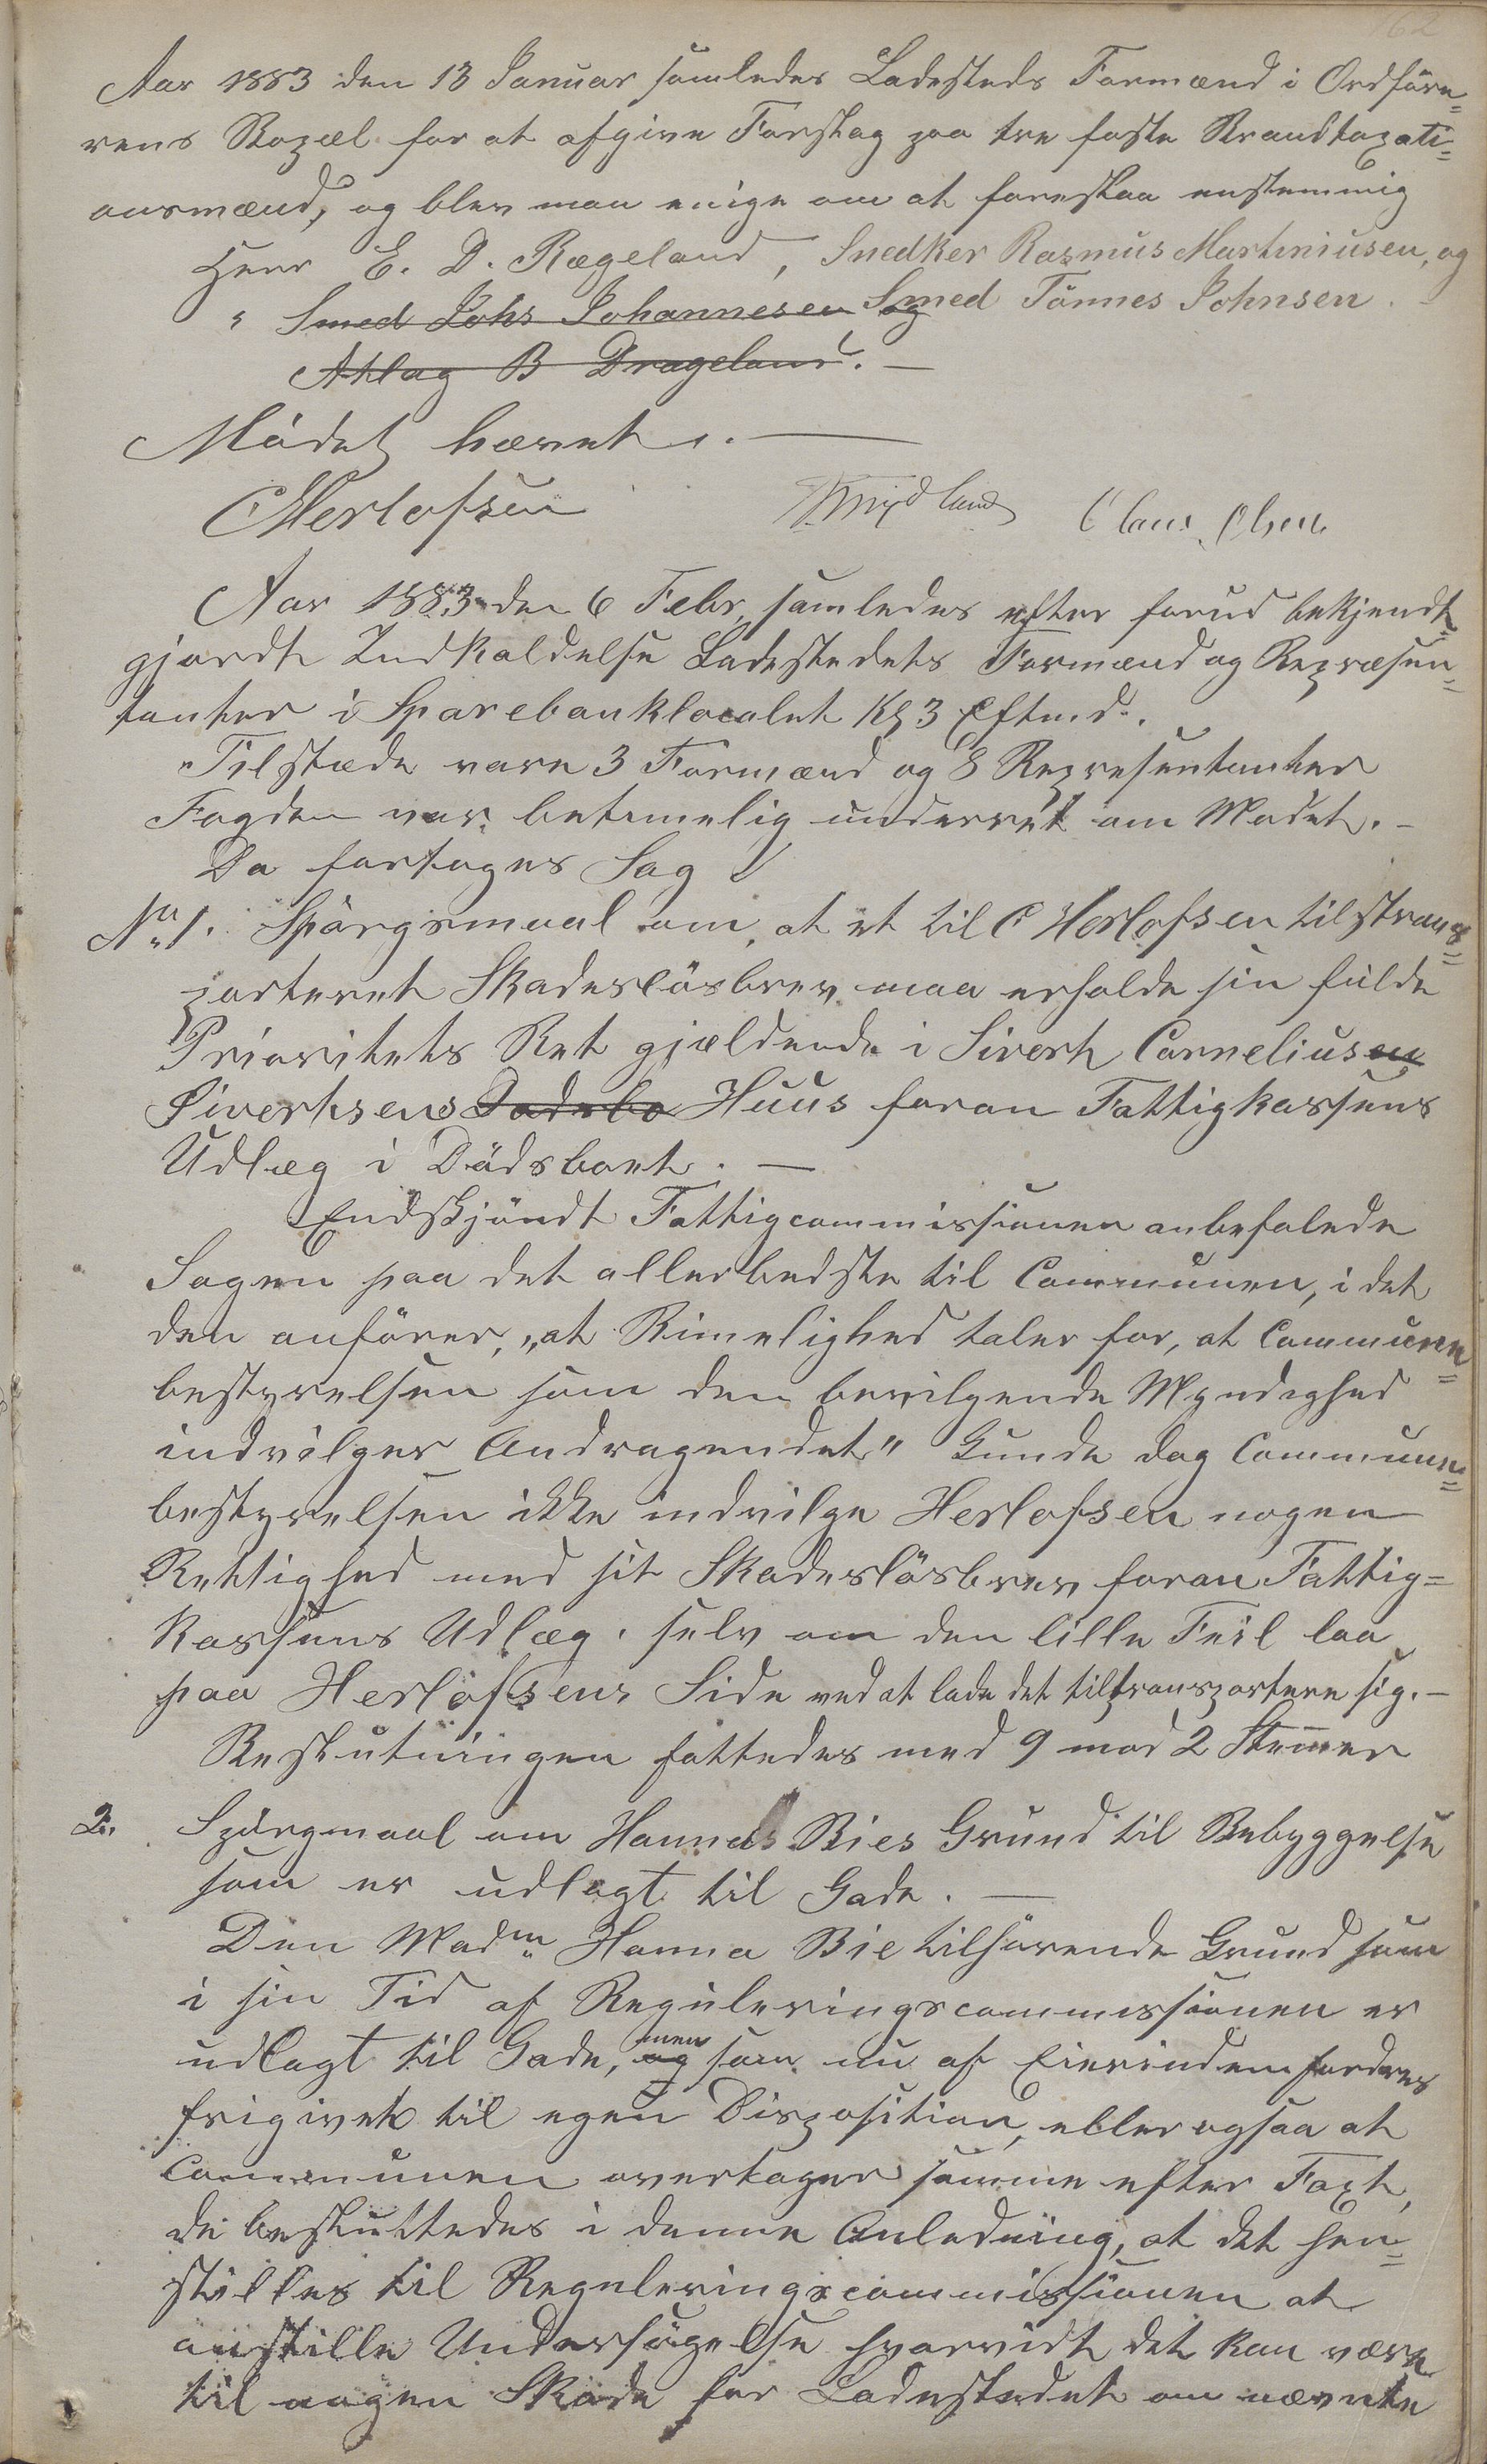 162
Aar 1883 den 13 Januar samledes Ladesteds Formænd i Ordföre=
rens Bopæl for at afgive Forslag paa tre faste Brandtaxati=
onsmænd, og blev man enige om at foreslaa enstemmig
Herr E. D. Rægeland, Snedker Rasmus Martiniusen, og
" Smed Johs Johannesen og Smed Tönnes Johnsen.
Atlag B Drageland. —
Mödet hævet. —
C Herlofsen Olaus Olsen
Aar 1883 den 6 Febr, samledes efter forud bekjendt=
gjordt Indkaldelse Ladestedets Formænd og Repræsen=
tanter i Sparebanklocalet Kl 3 Eftmd.
Tilstæde vare 3 Formænd og 8 Representanter
Fogden var betimelig underret om Mödet. —
Da fortoges Sag
No 1. Spörgsmaal om, at et til C Herlofsen tilstrans=
porteret Skadeslösbrev maa erholde sin fulde
Prioritets Ret gjældende i Sivert Corneliusen
Sivertsens Dødsbo Huus foran Fattigkassens
Udlæg i Dödsboet. —
Endskjöndt Fattigcommissionen anbefalede
Sagen paa det allerbedste til Communen, i det
den anförer, "at Rimelighed taler for, at Commune=
bestyrelsen som den bevilgende Myndighed
indvilger Andragendet" Kunde dog Commune=
bestyrelsen ikke indvilge Herlofsen nogen
Rettighed med sit Skadeslösbrev foran Fattig=
kassens Udlæg, selv om den lille Feil laa
paa Herlofsens Side ved at lade det tiltransportere sig. —
Beslutningen fattedes med 9 mod 2 Stemmer
2. Spörgmaal om Hannas Bies Grund til Bebyggelse
som er udlagt til Gade. —
Den Madm Hanna Bie tilhörende Grund som
i sin Tid af Reguleringscommissionen er
udlagt til Gade, og men som nu af Eierinden fordres
frigivet til egen Disposition, eller ogsaa at
Communen overtager samme efter Taxt,
de besluttedes i denne Anledning, at det hen=
stilles til Reguleringscommissionen at
anstille Undersögelse hvorvidt det kan være
til nogen Skade for Ladestedet om nævnte